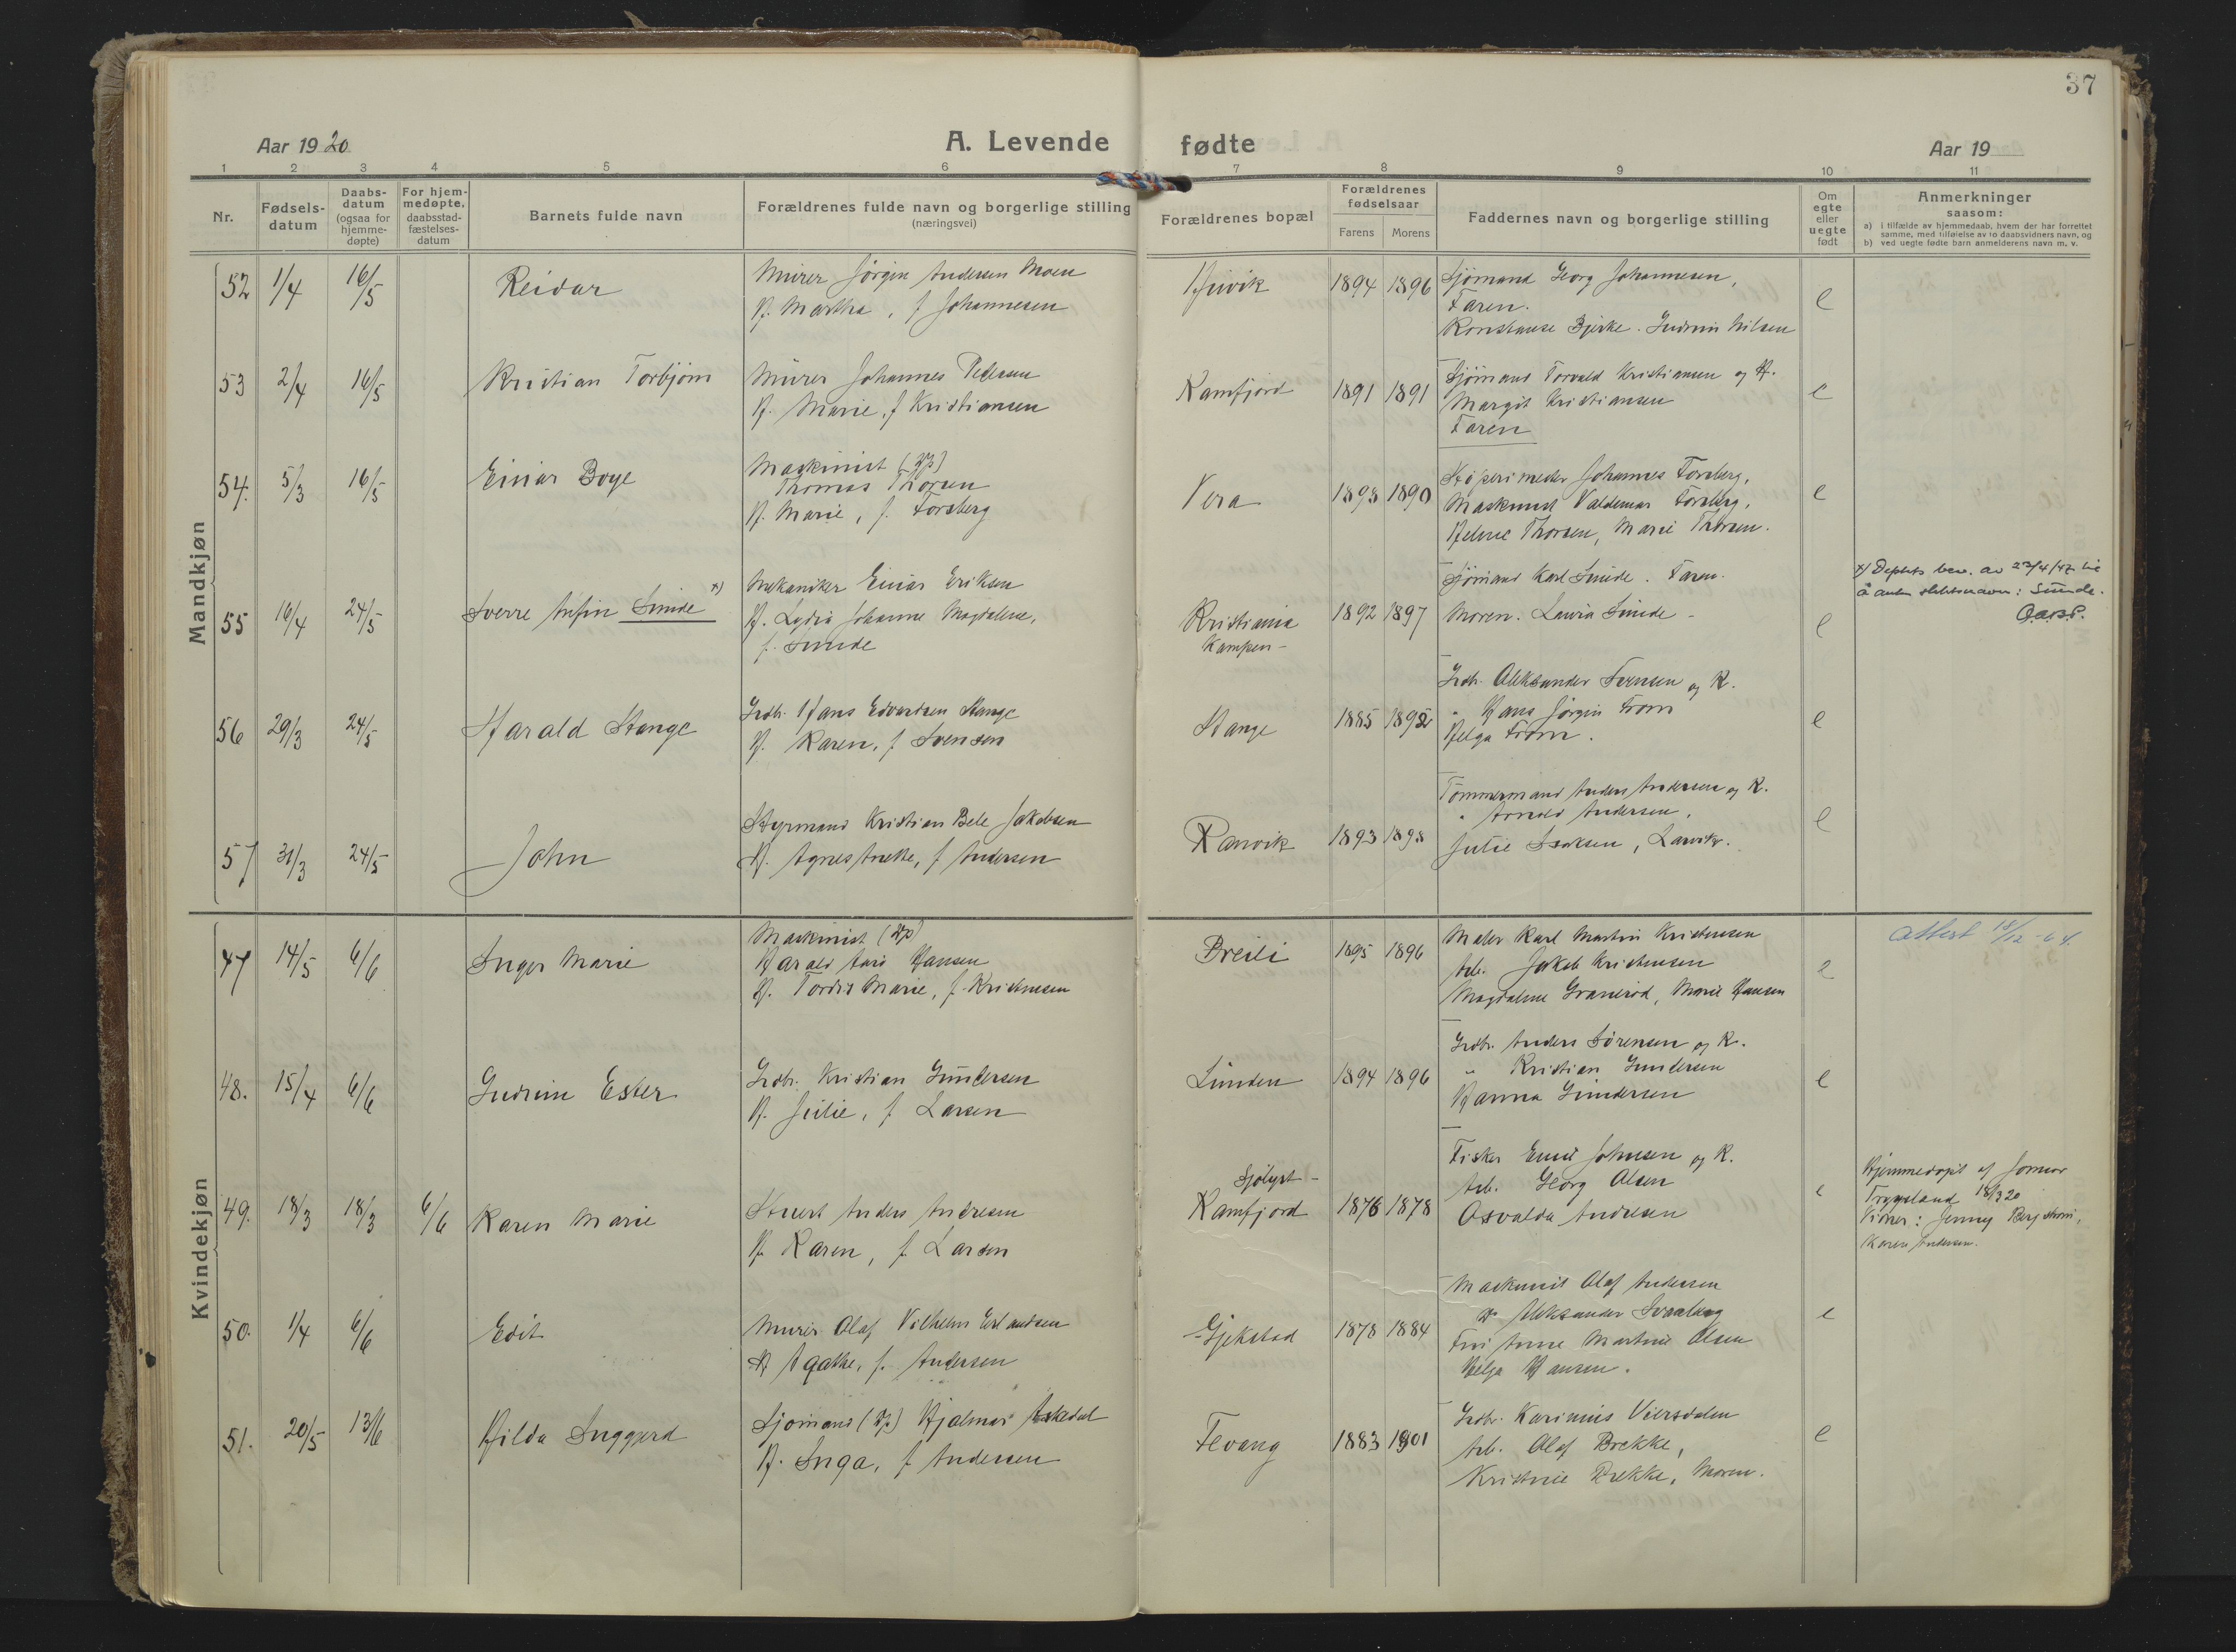 37
Aar 1920
A. Levende fødte
Aar 19
1 2 3 4 5 6 7 8 9 10 11
Nr.
Fødsels-
datum
Daabs-
datum
(ogsaa for
hjemme-
døpte)
For hjem-
medøpte.
daabsstad-
fæstelses-
datum
Barnets fulde navn
Forældrenes fulde navn og borgerlige stilling
(næringsvei)
Forældrenes bopæl
Forældrenes
fødselsaar
Farens Morens
Faddernes navn og borgerlige stilling
Om
egte
eller
uegte
født
Anmerkninger
saasom:
a) i tilfælde av hjemmedaab, hvem der har forrettet
samme, med tilføielse av to daabsvidners navn, og
b) ved uegte fødte barn anmelderens navn m. v.
Mandkjøn
52 1/4 16/5 Reidar
Murer Jörgen Andersen Moen
H. Martha, f Johannesen
1894 1896
Sjömand Georg Johannesen,
Faren.
Konstanse Bjerke. Gudrun Nilsen
e
53 2/4 16/5 Kristian Torbjørn
Murer Johannes Pedersen
H. Marie, f Kristiansen
Kamfjord 1891 1891
Sjömand Torvald Kristiansen og H.
Margit Kristiansen
Faren
e
54. 5/3 16/5 Einar Boye
Maskinist
Thomas Thorsen
H. Marie, f. Forsberg
Vera 1893 1890
Johannes Forsberg,
Maskinist Valdemar Forsberg,
Helene Thorsen, Marie Thorsen.
e
55 16/4 24/5 Sverre Anfin Sunde x)
Mekaniker Einar Eriksen
H. Lydia Johanne Magdalene,
f. Sunde
Kristiania
Kampen -
1892 1897
Sjömand Karl Sunde. Faren.
Moren. Laura Sunde -
e
x) Depts bev. av 23/4/47 til
å anta slektsnavn: Sunde.
56 29/3 24/5 Harald Stange
Grdbr. Hans Edvardsen Stange
H. Karen, f Svensen
Stange 1885 1892
Grdbr. Aleksander Svensen og K.
" Hans Jörgen From
Helga From.
e
57 31/3 24/5 John
Styrmand Kristian Bele Jakobsen
H. Agnes Anette, f Andersen
Ranvik 1893 1898
Tömmermand Anders Andersen og K.
" Arnold Andersen,
Julie Isaksen, Larvik.
e
Kvindekjøn
47 14/5 6/6 Inger Marie
Maskinist
Harald Hansen
H. Tordis Marie, f. Kristensen
Breili 1895 1896
Maler Karl Martin Kristensen
Arb. Jakob Kristensen
Magdalene Granerød, Marie Hansen
e
attest 15/12-64.
48. 15/4 6/6 Gudrun Ester
Grdbr. Kristian Gundersen
H. Julie, f Larsen
Lunden 1894 1896
Grdbr. Anders Sørensen og K.
" Kristian Gundersen
Hanna Gundersen
e
49. 18/3 18/3 6/6 Karen Marie
Stuert Anders Andresen
H. Karen, f. Larsen
Sjölyst -
Kamfjord 1876 1878
Fisker Emil Johnsen og K.
Arb. Georg Olsen
Osvalda Andresen
e
Hjemmedöpt af Jormor
Trygsland 18/3 20
Vidner: Jenny Bergström,
Karen Andersen.
50. 1/4 6/6 Edit
Murer Olaf Vilhelm Erlandsen
H Agathe, f. Andersen
Gjekstad 1878 1884
Maskinist Olaf Andersen
Aleksander
Fru Anne Martine Olsen
Helga Hansen.
e
51. 20/5 13/6 Hilda Inggjerd
Sjömand Hjalmar Askedal
H. Inga, f Andersen
Fevang 1883 1901
Grdbr. Karinius Viersdalen
Arb. Olaf Brekke,
Kristine Brekke, Moren.
e